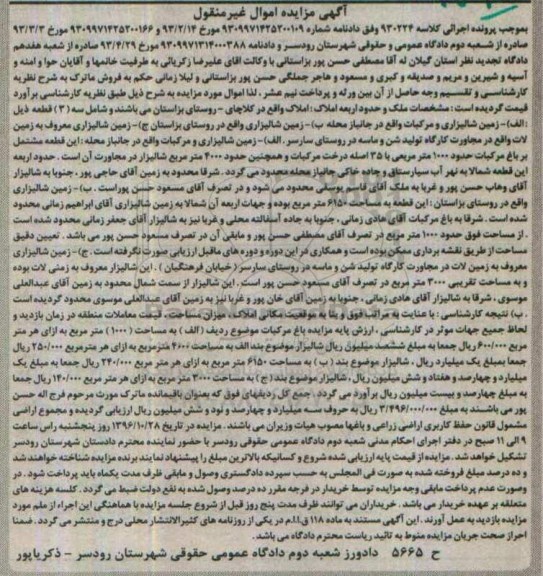 آگهی مزایده اموال غیرمنقول
بموجب پرونده اجرائی کلاسه ۹۳۰۲۲۴ وفق دادنامه شماره ۹۳۰۹۹۷۱۴۲۵۲۰۰۱۰۹ مورخ ۹۳/۲/۱۴ و ۹۳۰۹۹۷۱۴۲۵۲۰۰۱۶۶ مورخ ۹۳/۳/۳
صادره از شعبه دوم دادگاه عمومی و حقوقی شهرستان رودسر و دادنامه ۹۳۰۹۹۷۱۳۱۴۰۰۰۳۸۸ مورخ ۹۳/۴/۲۹ صادره از شعبه هفدهم
دادگاه تجدید نظر استان گیلان له آقا مصطفی حسن پور بزاستانی با وکالت آقای علیرضا زکریائی به طرفیت خانمها و آقایان حوا و امنه و
آسیه و شیرین و مریم و صدیقه و کبری و مسعود و هاجر جملگی حسن پور بزاستانی و لیلا زمانی حکم به فروش ماترک به شرح نظریه
کارشناسی و تقسیم وجه حاصل از آن بین ورثه و پرداخت نیم عشر، لذا اموال مورد مزایده به شرح ذیل طبق نظریه کارشناسی برآورد
قیمت گردیده است: مشخصات ملک و حدود اربعه املاک: املاک واقع در کلاچای - روستای بزاستان می باشند و شامل سه (۳) قطعه ذیل
: الف) - زمین شالیزاری و مرکبات واقع در جانباز محله ب) - زمین شالیزاری واقع در روستای بزاستان ج) - زمین شالیزاری معروف به زمین
لات واقع در مجاورت کارگاه تولید شن و ماسه در روستای سارسر. الف) - زمین شالیزاری و مرکبات واقع در جانباز محله: این قطعه مشتمل
بر باغ مرکبات حدود ۱۰۰۰ متر مربعی با ۳۵ اصله درخت مرکبات و همچنین حدود ۴۰۰۰ متر مربع شالیزار در مجاورت آن است. حدود اربعه
این قطعه شمالا به نهر آب سیارستاق و جاده خاکی جانباز محله محدود می گردد. شرقا محدود به زمین آقای حاجی پور، جنوبا به شالیزار
آقای وهاب حسن پور و غربا به ملک آقای قاسم یوسفی محدود می شود و در تصرف آقای مسعود حسن پوراست. ب) - زمین شالیزاری
واقع در روستای بزاستان: این قطعه به مساحت ۶۱۵۰ متر مربع بوده و جهات اربعه آن شمالا به زمین شالیزاری آقای ابراهیم زمانی محدود
شده است. شرقا به باغ مرکبات آقای هادی زمانی، جنوبا به جاده آسفالته محلی و غربا نیز به شالیزار آقای جعفر زمانی محدود شده است
. از مساحت فوق حدود ۱۰۰۰ متر مربع در تصرف آقای مصطفی حسن پور و مابقی آن در تصرف مسعود حسن پور می باشد. تعیین دقیق
مساحت از طریق نقشه برداری ممکن بوده است و همکاری در این دوره و دوره های ماقبل ارزیابی صورت نگرفته است. ج) - زمین شالیزاری
معروف به زمین لات در مجاورت کارگاه تولید شن و ماسه در روستای سارسر (خیابان فرهنگیان). این شالیزار معروف به زمنی لات بوده
و به مساحت تقریبی ۳۰۰۰ متر مربع در تصرف آقای مسعود حسن پور است. این شالیزار از سمت شمال محدود به زمین آقای عبدالعلی
موسوی، شرقا به شالیزار آقای هادی زمانی، جنوبا به زمین آقای خان پور و غربا نیز به زمین آقای عبدالعلی موسوی محدود گردیده است
. ب) نتیجه کارشناسی: با عنایت به مراتب فوق و بنا به موقعیت مکانی املاک، میزان مساحت، قیمت معاملات منطقه در زمان بازدید و
لحاظ جمیع جهات موثر در کارشناسی، ارزش پایه مزایده باغ مرکبات موضوع ردیف (الف) به مساحت (۱۰۰۰) متر مربع به ازای هر متر
مربع ۶۰۰/۰۰۰ ریال جمعا به مبلغ ششصد میلیون ریال شالیزار موضوع بند الف به مساحت ۴۰۰۰ متر مربع به ازای هر متر مربع ۲۵۰/۰۰۰ ریال
جمعا بمبلغ یک میلیارد ریال، شالیزار موضوع بند (ب) به مساحت ۶۱۵۰ متر مربع به ازای هر متر مربع ۲۴۰/۰۰۰ ریال جمعا به مبلغ یک
میلیارد و چهارصد و هفتاد و شش میلیون ریال، شالیزار موضوع بند (ج) به مساحت ۳۰۰۰ متر مربع به ازای هر متر مربع ۱۴۰/۰۰۰ ریال جمعا
به مبلغ چهارصد و بیست میلیون ریال برآورد می گردد. جمع کل ردیفهای فوق که بعنوان باقیمانده ماترک مورث مرحوم فرج اله حسن
پور می باشند به مبلغ ۳/۴۹۶/۰۰۰/۰۰۰ ریال به حروف سه میلیارد و چهارصد و نود و شش میلیون ریال ارزیابی گردیده و مجموع اراضی
مشمول قانون حفظ کاربری اراضی زراعی و باغها مصوب هیات وزیران می باشند. مزایده در تاریخ ۱۳۹۶/۱۰/۲۸ روز پنجشنبه راس ساعت
۹ الی ۱۱ صبح در دفتر اجرای احکام مدنی شعبه دوم دادگاه عمومی حقوقی رودسر با حضور نماینده محترم دادستان شهرستان رودسر
تشکیل خواهد شد. مزایده از قیمت پایه ارزیابی شده شروع و کسانیکه بالاترین مبلغ را پیشنهاد نمایند برنده مزایده شناخته خواهند شد
و ده درصد مبلغ فروخته شده به صورت فی المجلس به حسب سپرده دادگستری وصول و مابقی ظرف مدت یکماه باید پرداخت شود. در
صورت عدم پرداخت مابقی وجه مزایده توسط خریدار در فرجه مقرر ده درصد وصول شده به نفع دولت ضبط می گردد. کلسه هزینه های
متعلقه بر عهده خریدار می باشد. خریداران می توانند ظرف مدت پنج روز قبل از شروع جلسه مزایده با هماهنگی این اجراء از ملم مورد
مزایده بازدید به عمل آورند. این آگهی مستند به ماده ۱۱۸ ق.ا.م در یکی از روزنامه های کثیرالانتشار محلی درج و منتشر می گردد. ضمنا
احراز صحت جریان مزایده منوط به تائید ریاست محترم دادگاه می باشد.
ح ۵۶۶۵ دادورز شعبه دوم دادگاه عمومی حقوقی شهرستان رودسر - ذکریاپور